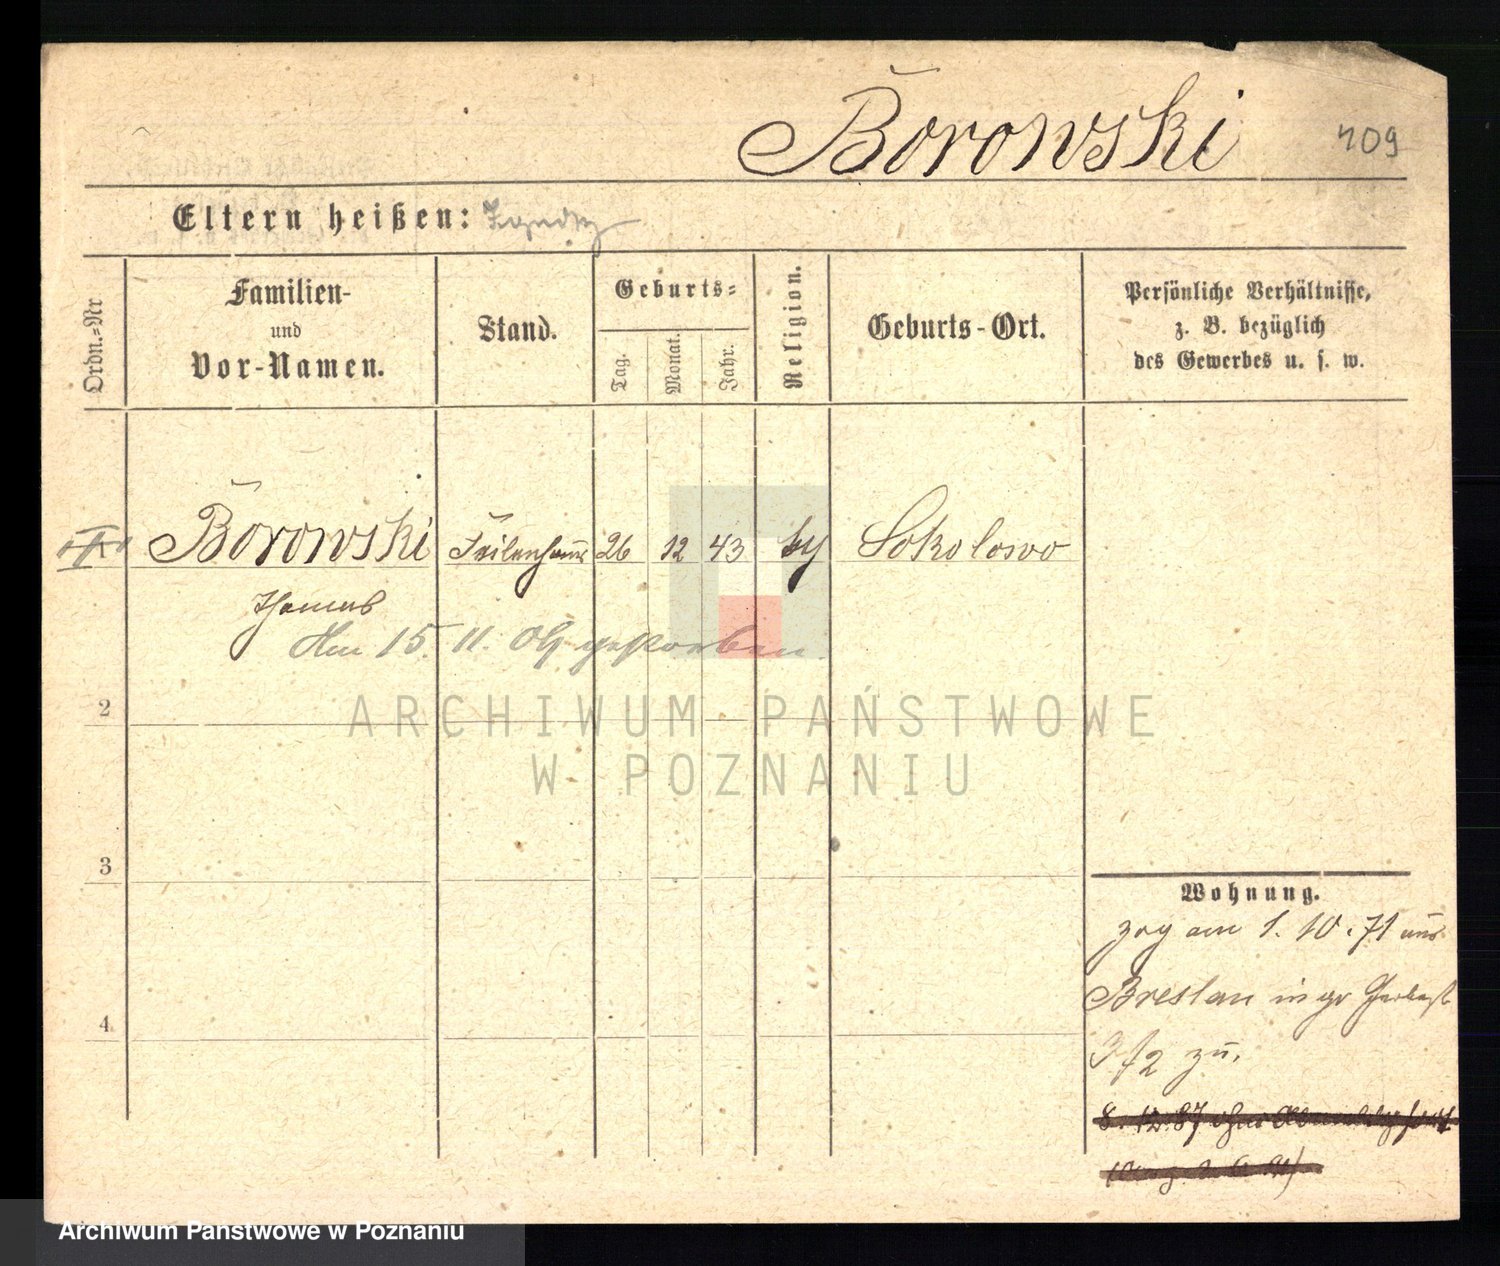 Borowski
409
Eltern heißen:
Ordn.-Nr
Familien-
und
Vor-Namen.
Stand.
Geburts-
Tag.
Monat.
Jahr.
Religion.
Geburts-Ort.
Persönliche Verhältnisse,
z. B. bezüglich
des Gewerbes u. s. w.
Borowski Feilenhauer 26 12 43 Sokolowo
Thomas
Am 15. 11. 04 gestorben.
2
3
4
Wohnung.
zog am 1. 10. 71 aus
Breslau in gr Gerberst
zu.
8. 12. 87 ohne Abmeldg fort
ARCHIWUM PAŃSTWOWE
W POZNANIU
Archiwum Państwowe w Poznaniu